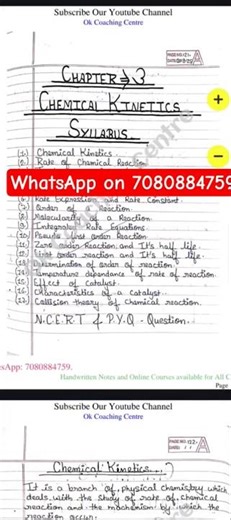 Subscribe Our Youtube Channel
Ok Coaching Centre
CHAPTER ⇒ 3
CHEMICAL KINETICS
SYLLABUS
(1.) Chemical Kinetics.
(2.) Rate of Chemical Reaction
WhatsApp on 7080884759
(6.) Rate Expression and Rate Constant.
(7.) Order of Reaction.
(8.) Molecularity of a Reaction.
(9.) Integrated Rate Equations.
(10.) Pseudo first order Reaction
(11.) Zero order Reaction and It's half life.
(12.) First order reaction and It's half life.
(13.) Determination of order of reaction.
(14.) Temperature dependance of rate of reaction.
(15.) Effect of Catalyst.
(16.) Characteristics of a catalyst.
(17.) Collision theory of chemical reaction.
N.C.E.R.T & P.Y.Q - Question.
sApp: 7080884759.
Handwritten Notes and Online Courses available for All C
Page
Subscribe Our Youtube Channel
Ok Coaching Centre
Chemical Kinetics
It is a branch of physical chemistry which
deals with the study of rate of chemical
reaction and the mechanism by which the
reaction occur.